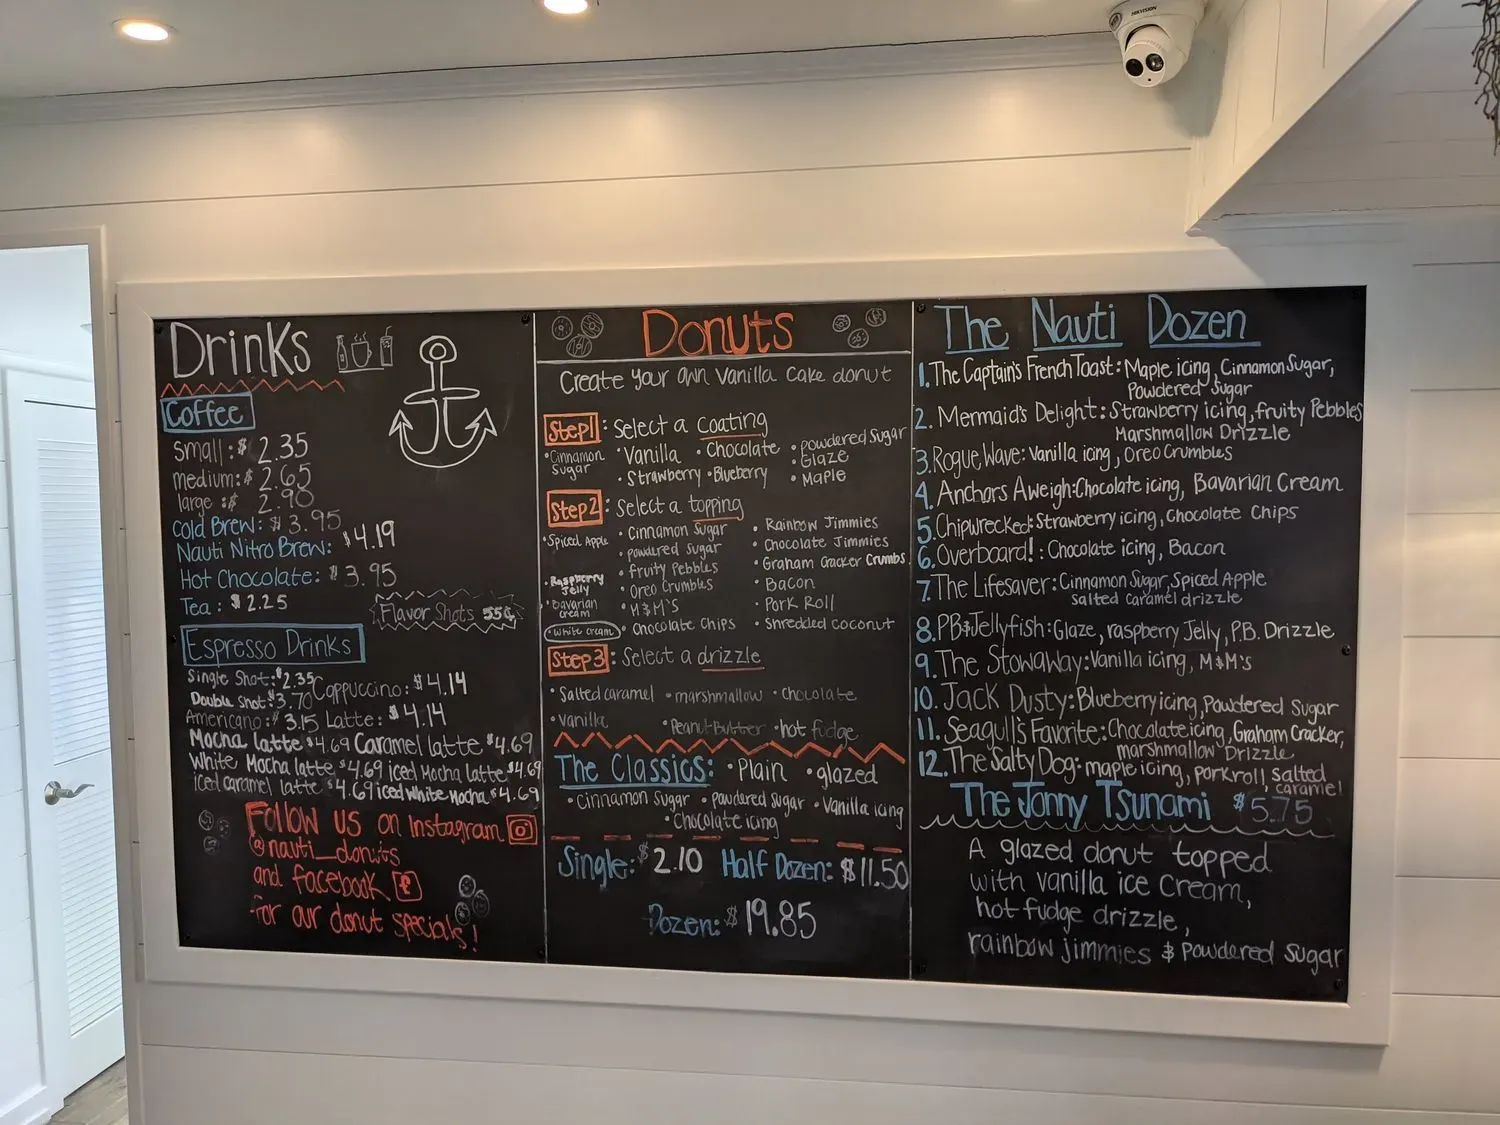 HIKVISION
Drinks
Coffee
Small: $ 2.35
medium: $ 2.65
large: $ 2.90
Cold Brew: $ 3.95
Nauti Nitro Brew: $4.19
Hot Chocolate: $ 3.95
Tea: $ 2.25
Flavor Shots 55¢
Espresso Drinks
Single Shot: $2.35
Double Shot: $3.70 Cappuccino: $4.14
Americano: $3.15 Latte: $4.14
Mocha latte $4.69 Caramel latte $4.69
White Mocha latte $4.69 iced Mocha latte $4.69
iced caramel latte $4.69 iced White Mocha $4.69
Follow us on Instagram
@nauti_donuts
and facebook f
for our donut specials!
Donuts
Create your own Vanilla Cake donut
Step1: Select a coating
• Cinnamon Sugar • Vanilla • Chocolate • powdered Sugar
• Strawberry • Blueberry • Glaze
• Maple
Step2: Select a topping
• Spiced Apple • Cinnamon Sugar • Rainbow Jimmies
• powdered Sugar • Chocolate Jimmies
• fruity Pebbles • Graham Cracker Crumbs
• Raspberry Jelly • Oreo Crumbles • Bacon
• Bavarian cream • M&M'S • Pork Roll
• White cream • Chocolate Chips • Shredded coconut
Step3: Select a drizzle
• Salted caramel • marshmallow • chocolate
• vanilla • Peanut Butter • hot fudge
The Classics: • Plain • glazed
• Cinnamon Sugar • powdered sugar • Vanilla icing
• Chocolate icing
Single: $2.10 Half Dozen: $11.50
Dozen: $19.85
The Nauti Dozen
1. The Captain's French Toast: Maple icing, Cinnamon Sugar,
Powdered Sugar
2. Mermaid's Delight: Strawberry icing, fruity Pebbles
Marshmallow Drizzle
3. Rogue Wave: Vanilla icing, Oreo Crumbles
4. Anchors Aweigh: Chocolate icing, Bavarian Cream
5. Chipwrecked: Strawberry icing, Chocolate Chips
6. Overboard!: Chocolate icing, Bacon
7. The Lifesaver: Cinnamon Sugar, Spiced Apple
salted caramel drizzle
8. PB&Jellyfish: Glaze, raspberry Jelly, P.B. Drizzle
9. The Stowaway: Vanilla icing, M&M's
10. Jack Dusty: Blueberry icing, Powdered Sugar
11. Seagull's Favorite: Chocolate icing, Graham Cracker,
marshmallow Drizzle
12. The Salty Dog: maple icing, pork roll, salted
caramel
The Jonny Tsunami $5.75
A glazed donut topped
with vanilla ice cream,
hot fudge drizzle,
rainbow jimmies & Powdered Sugar